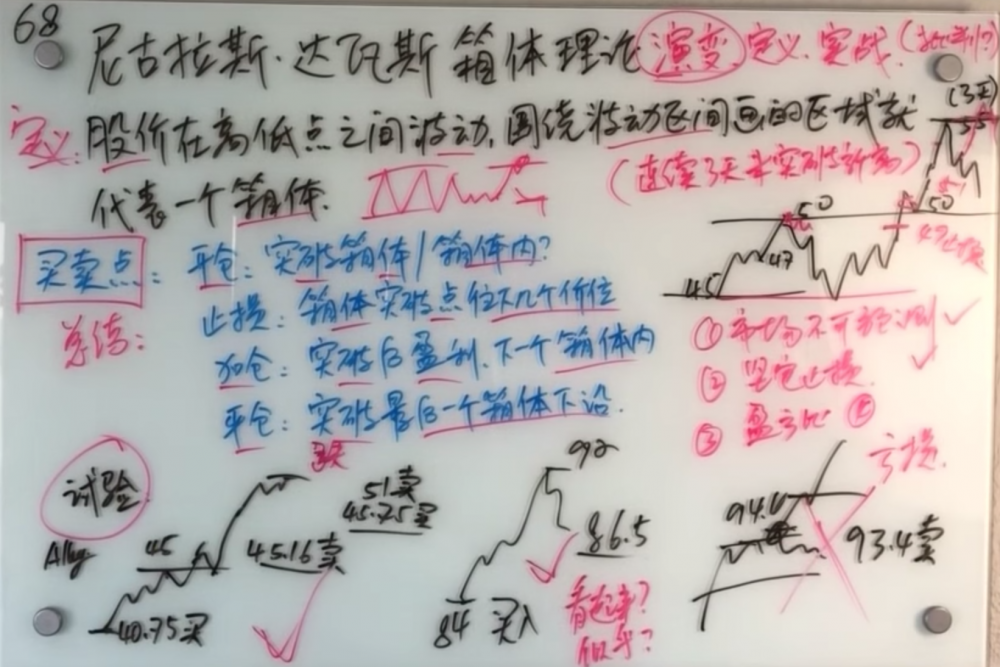 68
尼古拉斯·达瓦斯箱体理论 演变 定义.实战.
定义: 股价在高低点之间波动,围绕波动区间画的区域就
(3天)
代表一个箱体.
(连续3天未突破新高)
买卖点: 平仓: 突破箱体/箱体内?
50
51
50
47
47止损
45
总结: 止损: 箱体突破点往下几个价位
加仓: 突破后盈利.下一个箱体内
平仓: 突破最后一个箱体下沿.
①市场不可预测 ✓
②坚定止损.
③盈亏比
试验
51卖
45.75买
45
45.16卖
40.75买
92
86.5
84 买入
看起来?
似乎?
亏损.
93.4卖